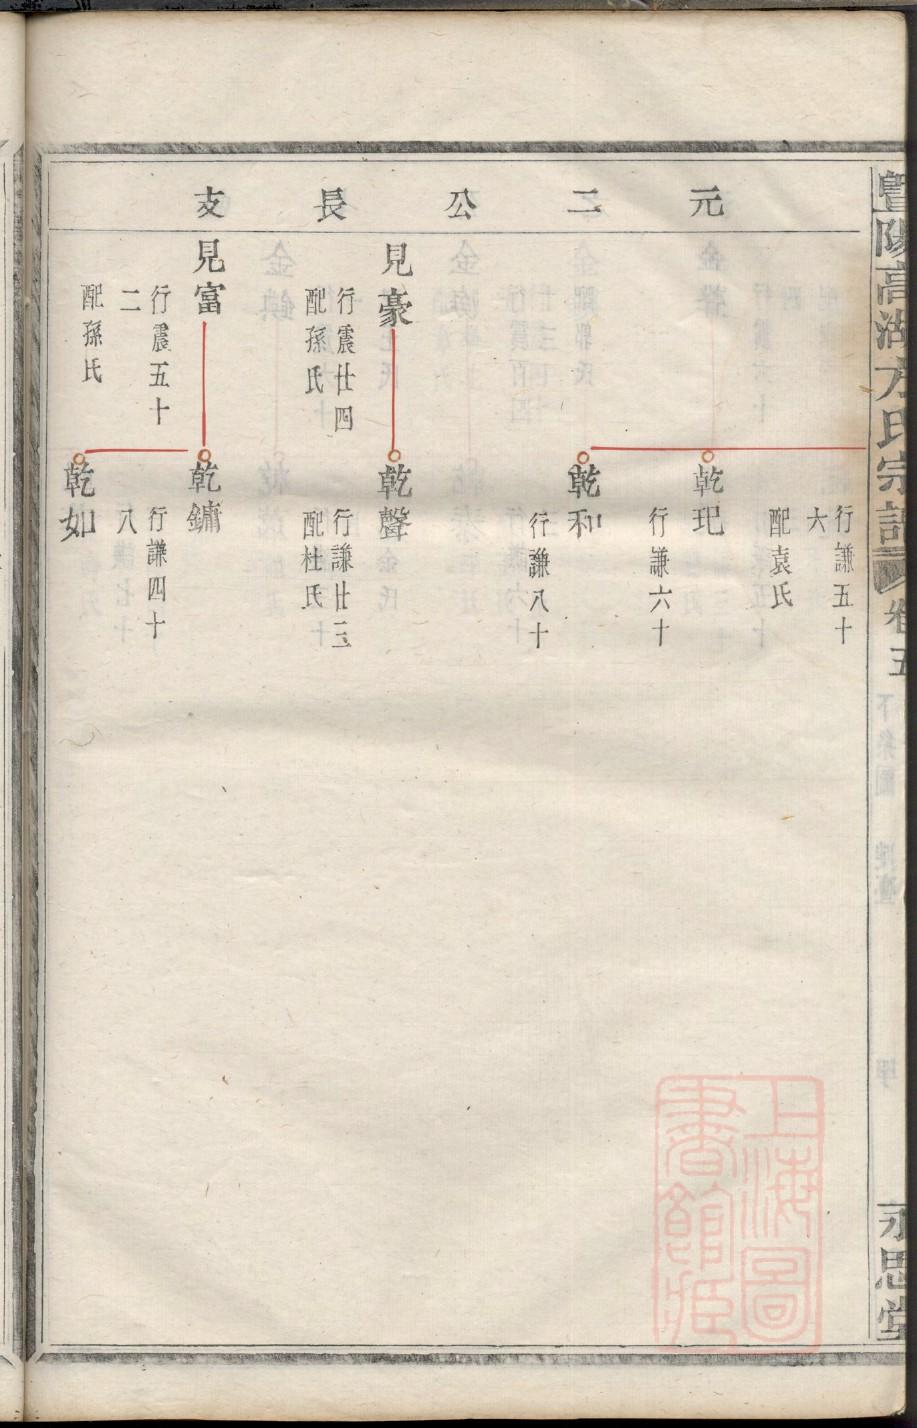 暨陽高湖方氏宗譜
卷五
永思堂
元二公長支
行謙五十
六
配袁氏
乾玘
行謙六十
乾和
行謙八十
見豪
行震廿四
配孫氏
乾聲
行謙廿三
配杜氏
見富
行震五十
二
配孫氏
乾鏞
行謙四十
八
乾如
上海圖
書館藏